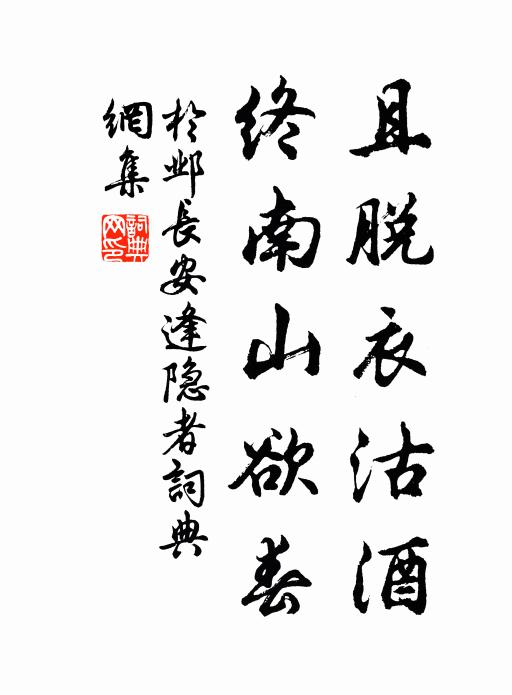 且脱衣沽酒
终南山欲春
於邺长安逢隐者詞典
網集
詞典
网印